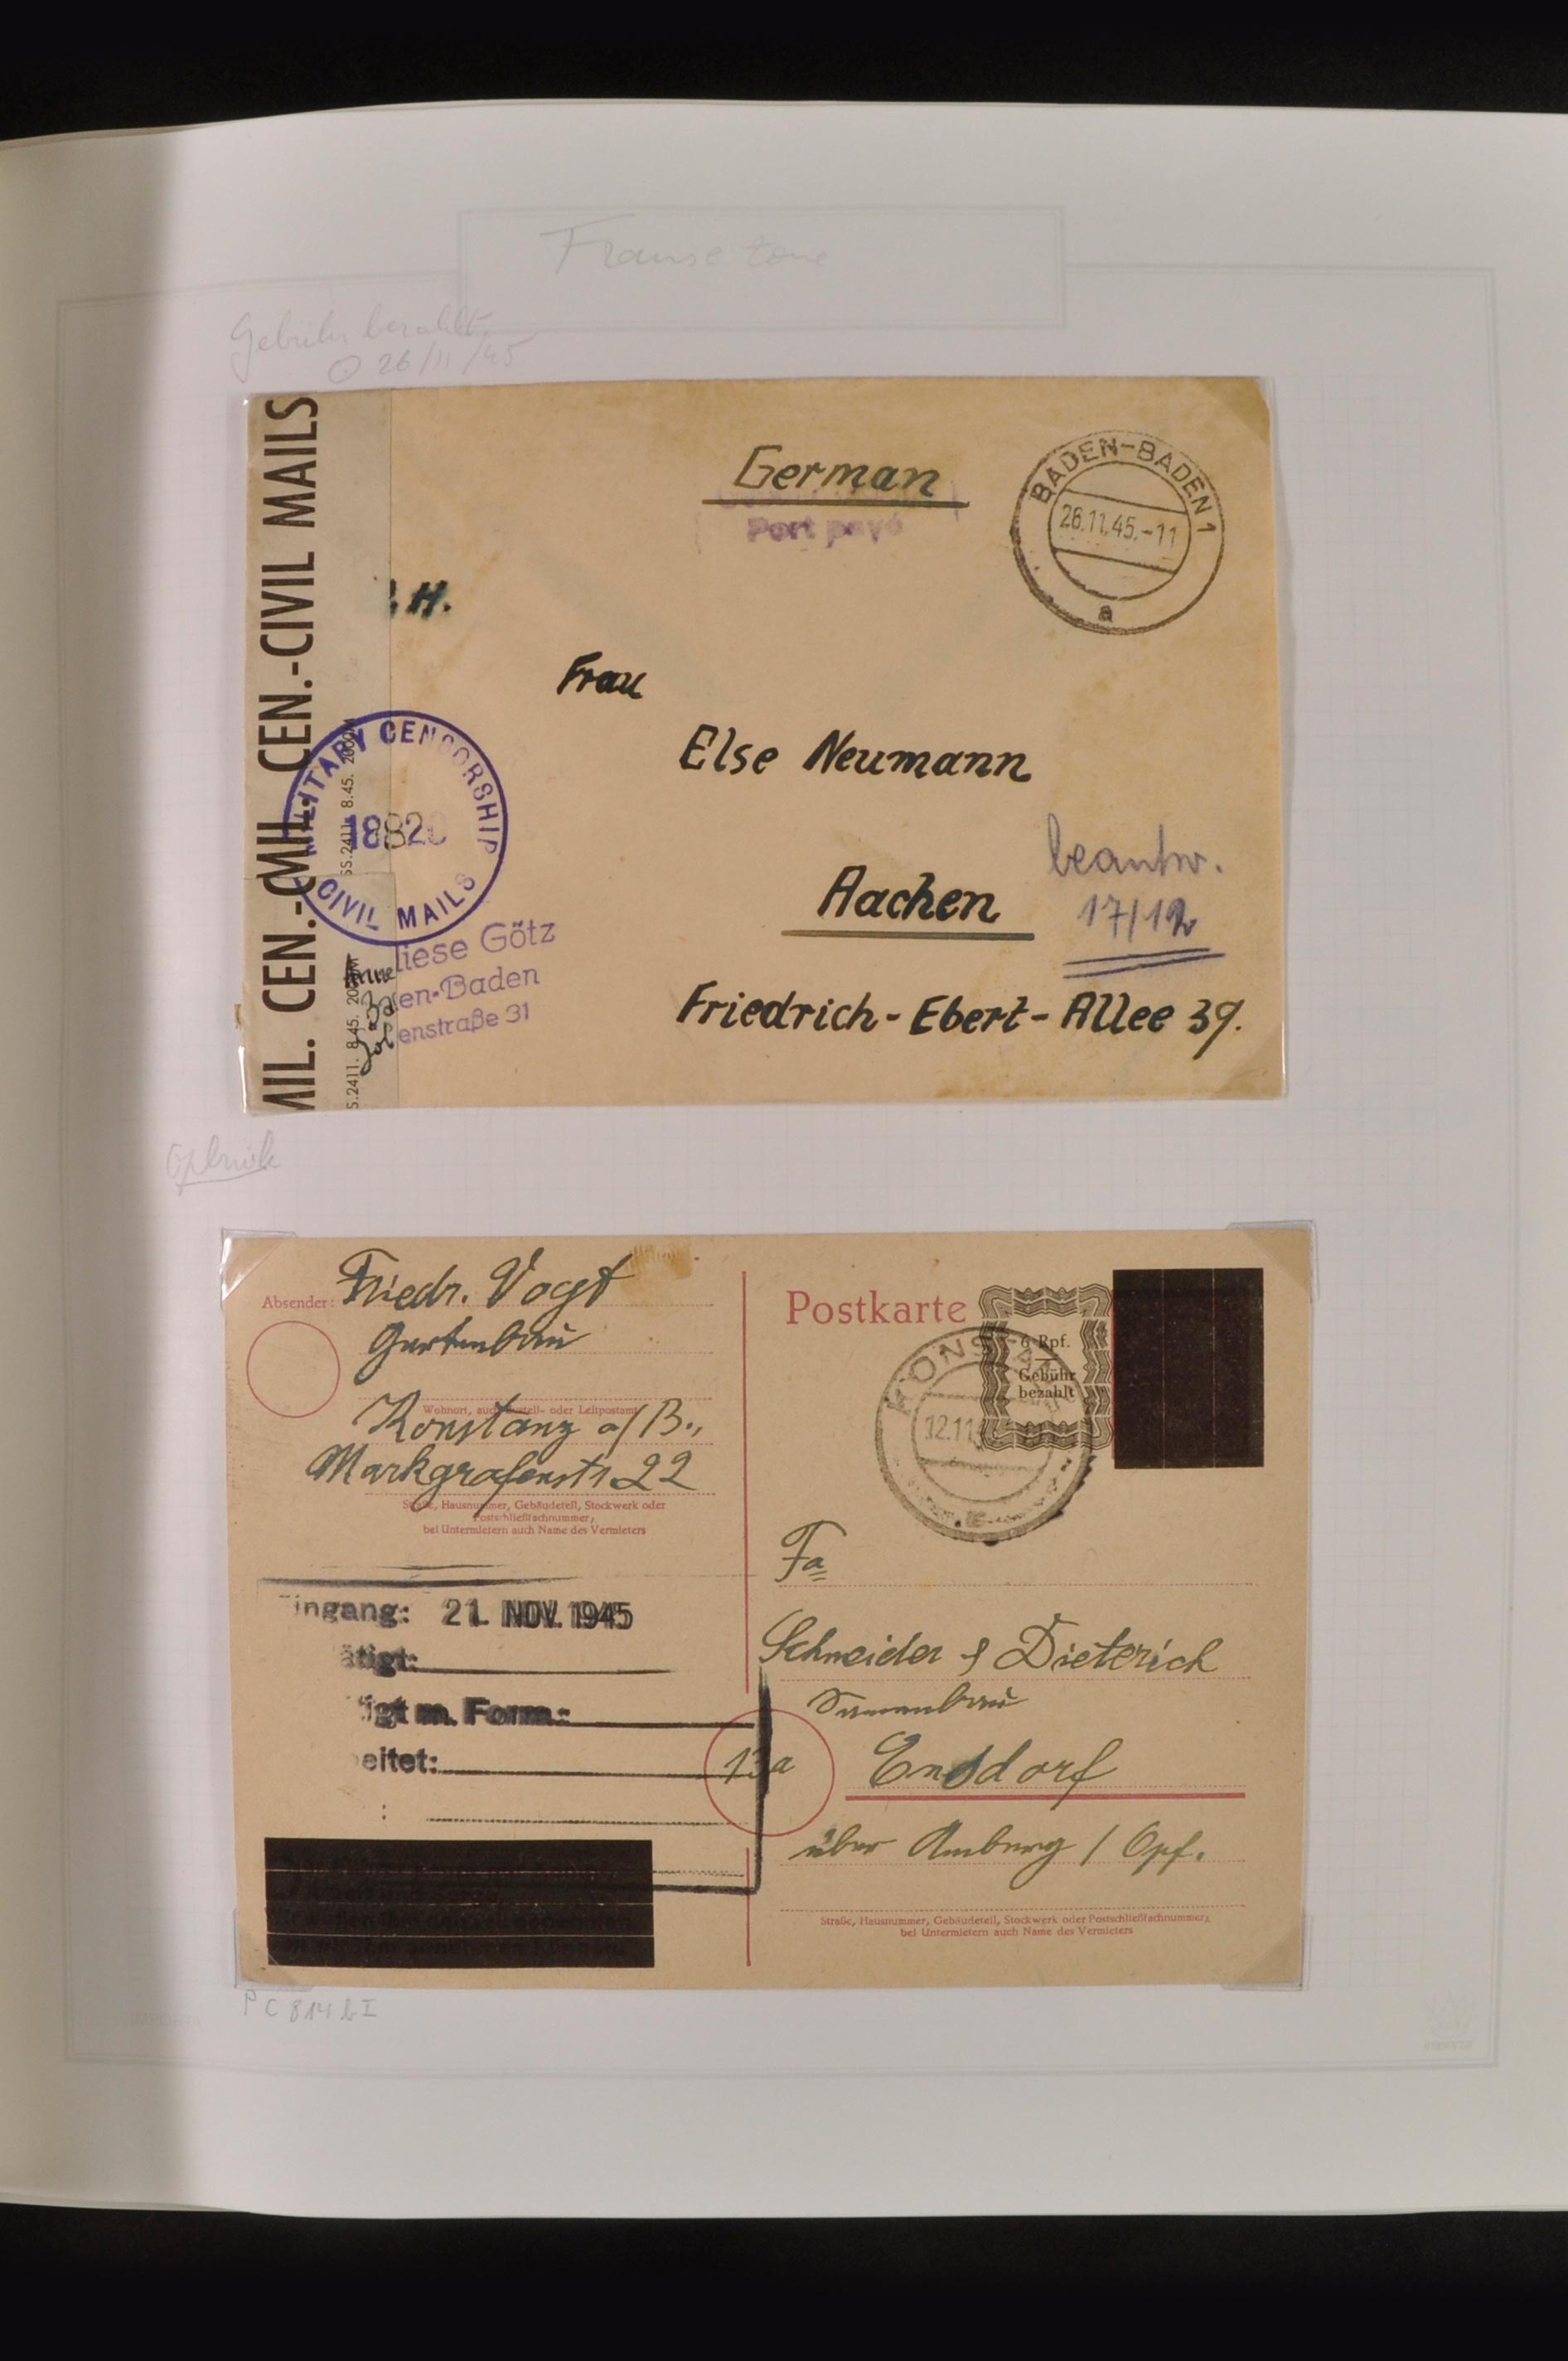 Franse Zone
Gebühr bezahlt
26/11/45
MIL. CEN.-CIVIL MAILS
MIL. CEN.-CIVIL MAILS
German
Port payé
BADEN-BADEN 1
26.11.45.-11
a
H.
Frau
Else Neumann
MILITARY CENSORSHIP
1882
CIVIL MAILS
SS.2411. 8.45. 2000M
S.2411. 8.45. 200M
Aachen
beantw.
17/12
Anneliese Götz
Baden-Baden
enstraße 31
Friedrich-Ebert-Allee 39.
Opdruk
Absender: Friedr. Vogt
Gartenbau
Wohnort, auch Zustell- oder Leitpostamt
Konstanz a/B.,
Markgrafenstr. 22
Straße, Hausnummer, Gebäudeteil, Stockwerk oder
Postschließfachnummer,
bei Untermietern auch Name des Vermieters
ingang: 21. NOV. 1945
ätigt:
igt m. Form.:
eitet:
:
Postkarte
6 Rpf.
Gebühr
bezahlt
KONSTANZ
12.11
Fa
Schneider & Dieterich
Samenbau
13a
Ensdorf
über Amberg / Opf.
Straße, Hausnummer, Gebäudeteil, Stockwerk oder Postschließfachnummer,
bei Untermietern auch Name des Vermieters
PC 814 b I